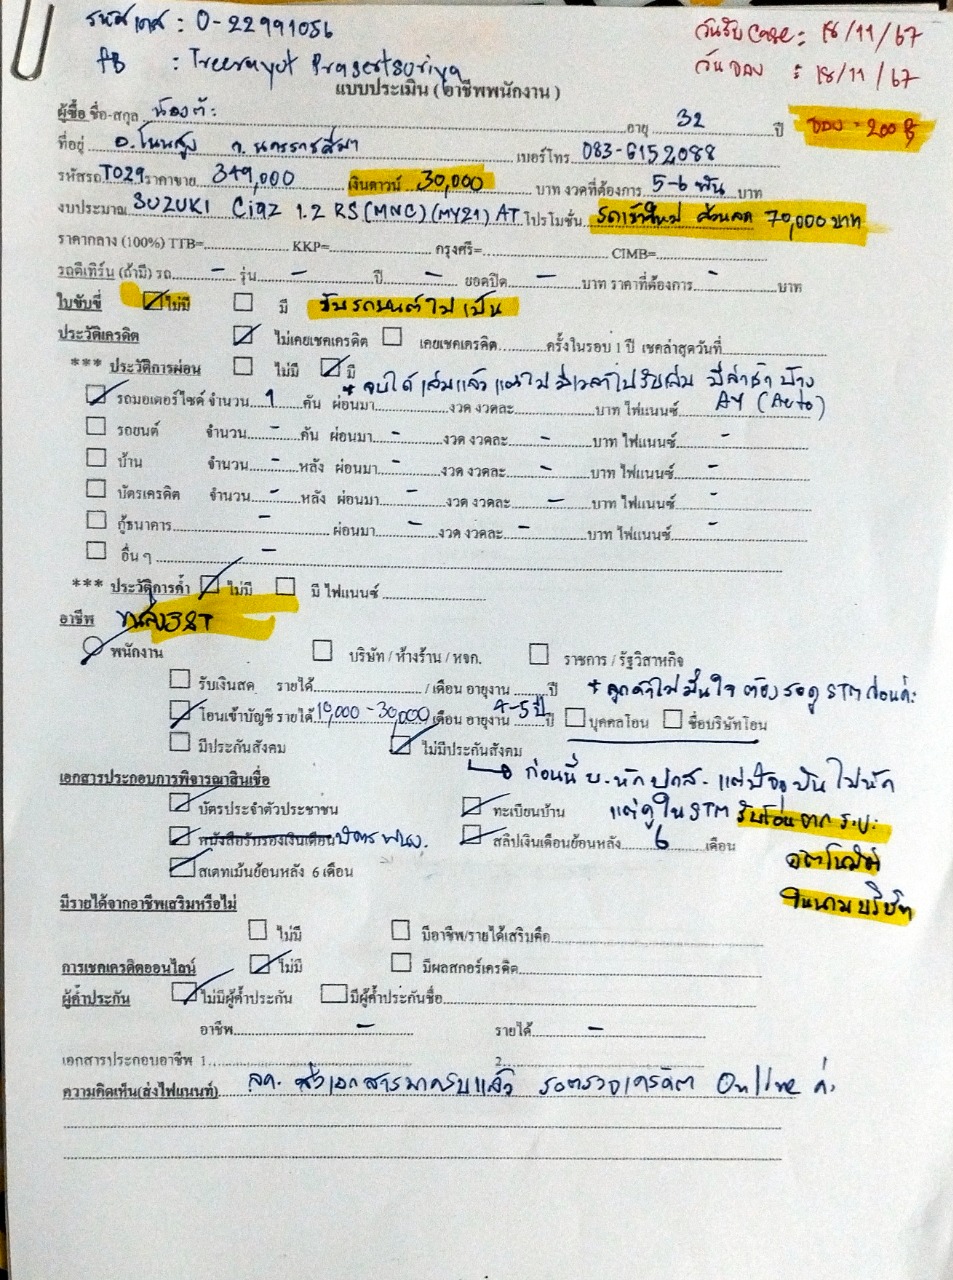 รหัสเคส : 0-22991056
วันรับ Case : 18/11/67
FB : Treerayut Prasertsuriya
วันจอง : 18/11/67
แบบประเมิน ( อาชีพพนักงาน )
ผู้ซื้อ ชื่อ-สกุล น้องต้ะ อายุ 32 ปี จอง = 200 ฿
ที่อยู่ อ.โนนสูง จ.นครราชสีมา เบอร์โทร 083-6152088
รหัสรถ T029 ราคาขาย 349,000 เงินดาวน์ 30,000 บาท งวดที่ต้องการ 5-6 พัน บาท
งบประมาณ SUZUKI Ciaz 1.2 RS (MNC) (MY21) AT โปรโมชั่น รถเข้าใหม่ ส่วนลด 70,000 บาท
ราคากลาง (100%) TTB= KKP= กรุงศรี= CIMB=
รถตีเทิร์น (ถ้ามี) รถ - รุ่น - ปี - ยอดปิด - บาท ราคาที่ต้องการ - บาท
ใบขับขี่ ไม่มี มี ขับรถยนต์ไม่เป็น
ประวัติเครดิต ไม่เคยเชคเครดิต เคยเชคเครดิต ครั้งในรอบ 1 ปี เชคล่าสุดวันที่
*** ประวัติการผ่อน ไม่มี มี
* จบได้เล่มแล้ว แต่ไม่มีเวลาไปรับเล่ม มีล่าช้าบ้าง
รถมอเตอร์ไซค์ จำนวน 1 คัน ผ่อนมา งวด งวดละ บาท ไฟแนนซ์ AY (Auto)
รถยนต์ จำนวน - คัน ผ่อนมา - งวด งวดละ - บาท ไฟแนนซ์ -
บ้าน จำนวน - หลัง ผ่อนมา - งวด งวดละ - บาท ไฟแนนซ์ -
บัตรเครดิต จำนวน - หลัง ผ่อนมา - งวด งวดละ - บาท ไฟแนนซ์ -
กู้ธนาคาร - ผ่อนมา - งวด งวดละ - บาท ไฟแนนซ์ -
อื่น ๆ -
*** ประวัติการค้ำ ไม่มี มี ไฟแนนซ์
อาชีพ ขนส่ง
พนักงาน บริษัท / ห้างร้าน / หจก. ราชการ / รัฐวิสาหกิจ
รับเงินสด รายได้ / เดือน อายุงาน ปี * ลูกค้าไม่มั่นใจ ต้องรอดู STM ก่อนค่ะ
โอนเข้าบัญชี รายได้ 10,000 - 30,000 เดือน อายุงาน 4-5 ปี ปี บุคคลโอน ชื่อบริษัทโอน
มีประกันสังคม ไม่มีประกันสังคม
ก่อนนี้ บ. หัก ปกส. แต่ปัจจุบันไม่หัก
เอกสารประกอบการพิจารณาสินเชื่อ
บัตรประจำตัวประชาชน ทะเบียนบ้าน แต่ดูใน STM รับโอนจากระบบ
หนังสือรับรองเงินเดือน บัตรพนง. สลิปเงินเดือนย้อนหลัง 6 เดือน อัตโนมัติ
สเตทเม้นย้อนหลัง 6 เดือน
ในนามบริษัท
มีรายได้จากอาชีพเสริมหรือไม่
ไม่มี มีอาชีพ/รายได้เสริมคือ
การเชคเครดิตออนไลน์ ไม่มี มีผลสกอร์เครดิต
ผู้ค้ำประกัน ไม่มีผู้ค้ำประกัน มีผู้ค้ำประกันชื่อ
อาชีพ - รายได้ -
เอกสารประกอบอาชีพ 1. 2.
ความคิดเห็น(ส่งไฟแนนท์) ลค. ส่งเอกสารมาครบแล้ว รอตรวจเครดิต Online ค่ะ